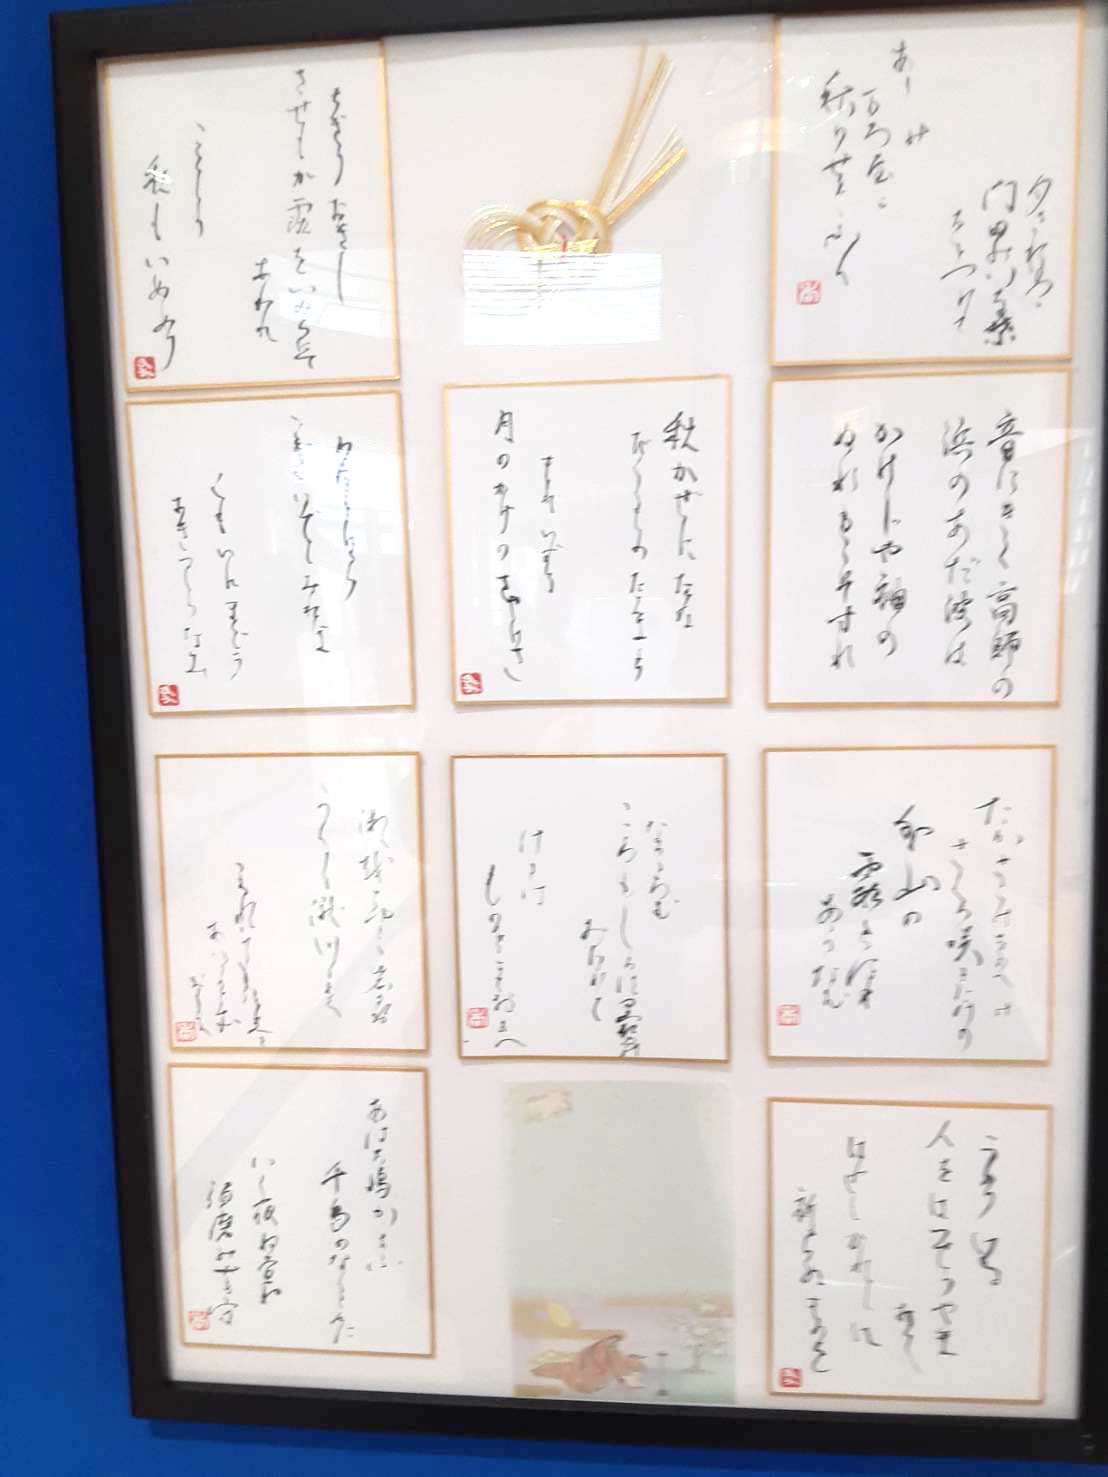 夕されは
門田のいな葉
をとつれて
あしの
まろ屋に
音にきく高師の
浜のあだ波は
かけじや袖の
ぬれもこそすれ
さくら咲にけり
外山の
霞
あらなむ
うかりける
人をはつせのやま
おろし
はけしかれとは
祈らぬものを
秋かぜにたな
びくくものたえまより
もれいづる
月のかけのさやけさ
なかからむ
こころもしらす黒髪の
みたれて
けさは
ものをこそおもへ
ちぎりおきし
させもか露をいのちにて
あわれ
ことしの
秋もいぬめり
わたのはら
こぎいでてみれは
くもいにまごう
おきつしらなみ
滝川の
あはち嶋かよふ
千鳥のなくこゑに
いく夜ね覚ぬ
須磨のせき守